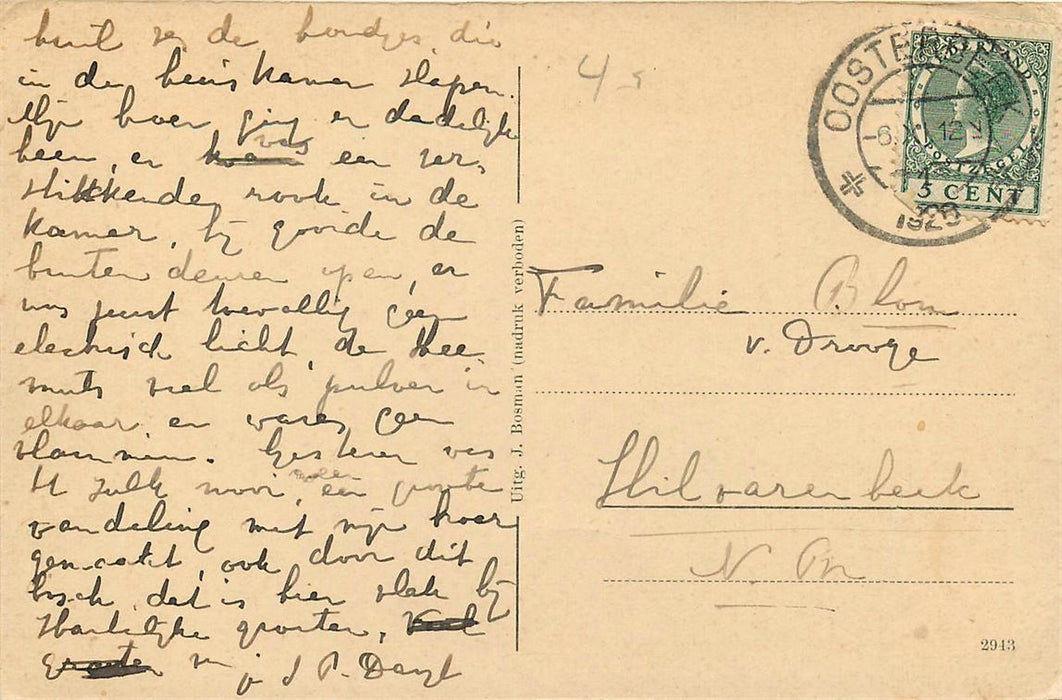 de hondjes die
in de huiskamer slapen.
Mijn heer ging er dadelijk
heen, er was een ver-
stikkende rook in de
kamer, hij gooide de
buiten deuren open, er
was juist toevallig geen
electrisch licht, de thee
muts viel als pulver in
elkaar en waren geen
vlammen. Gisteren was
't zulk mooi weer, een groote
wandeling met mijn heer
gemaakt, ook door dit
bosch, dat is hier vlak bij
Hartelijke groeten,
45
OOSTERBEEK
6.XI 12 N
1926
NEDERLAND
POSTZEGEL
5 CENT
Familie Blom
v. Drooge
Hilvarenbeek
N. Br
Uitg. J. Bosman (nadruk verboden)
2943